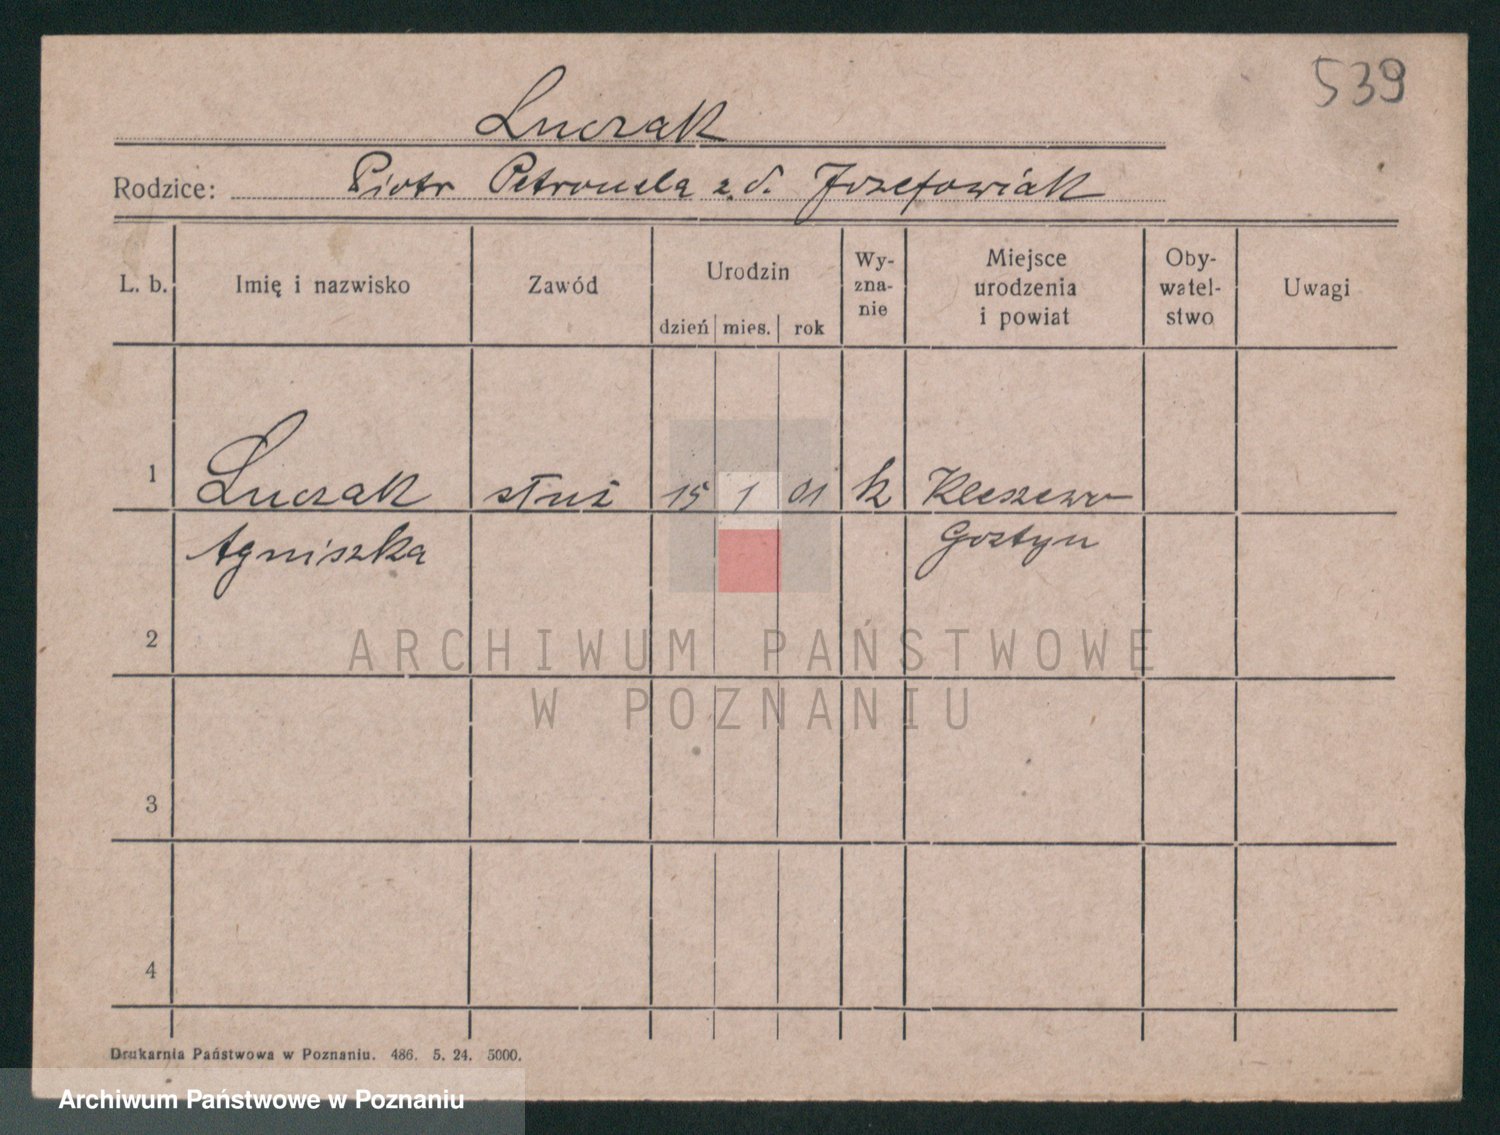 539
Luczak
Rodzice: Piotr Petronela z d. Józefowiak
L. b. Imię i nazwisko Zawód Urodzin dzień mies. rok Wy-zna-nie Miejsce urodzenia i powiat Oby-watel-stwo Uwagi
1 Luczak służ 15 1 01 k Kleszewo
Agniszka Gostyn
2
ARCHIWUM PAŃSTWOWE
W POZNANIU
3
4
Drukarnia Państwowa w Poznaniu. 486. 5. 24. 5000.
Archiwum Państwowe w Poznaniu